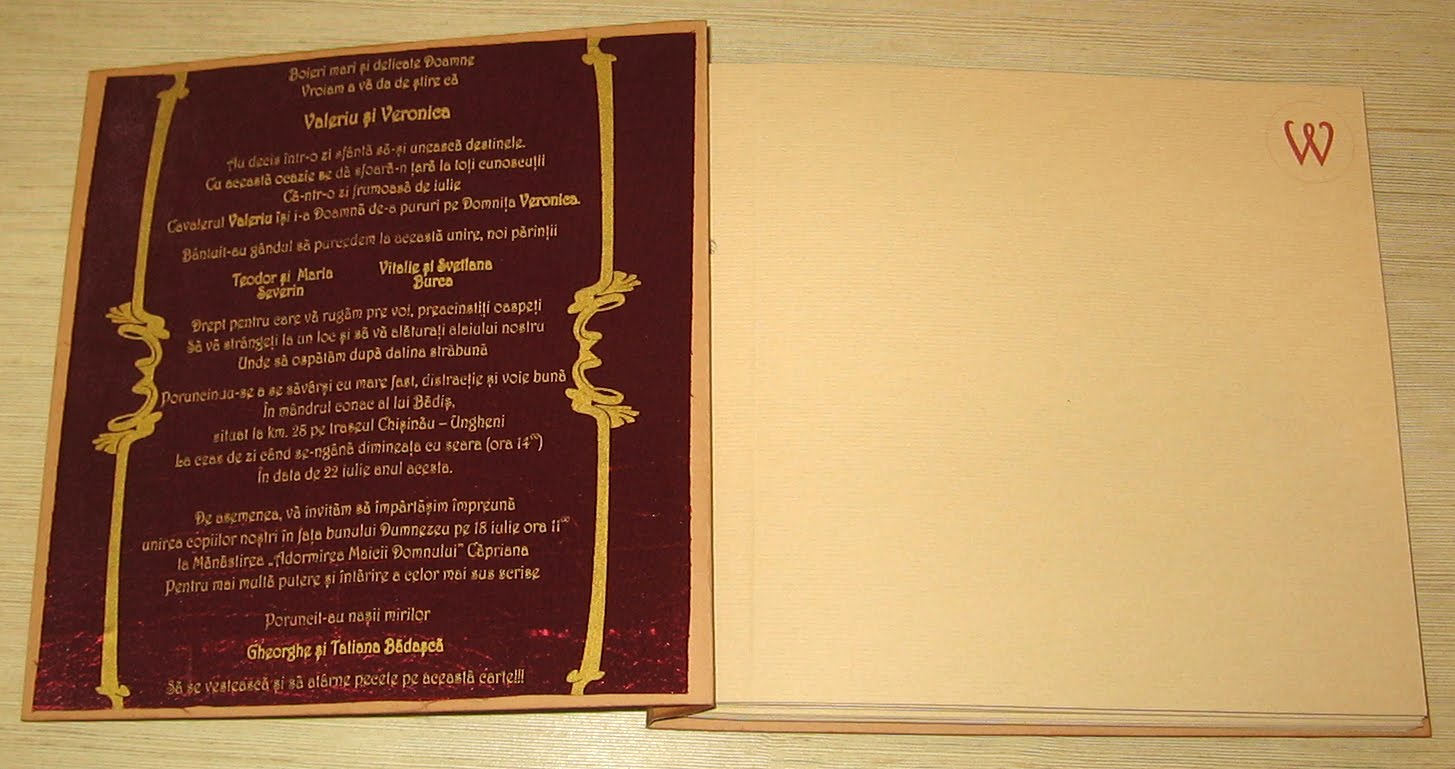 Boieri mari și delicate Doamne
Vroiam a vă da de știre că
Valeriu și Veronica
Au decis într-o zi sfântă să-și unească destinele.
Cu această ocazie se dă sfoară-n țară la toți cunoscuții
Că-ntr-o zi frumoasă de iulie
Cavalerul Valeriu își i-a Doamnă de-a pururi pe Domnița Veronica.
Bântuit-au gândul să purcedem la această unire, noi părinții
Teodor și Maria Severin
Vitalie și Svetlana Burca
Drept pentru care vă rugăm pre voi, preacinstiți oaspeți
Să vă strângeți la un loc și să vă alăturați alaiului nostru
Unde să ospătăm după datina străbună
Poruncindu-se a se săvârși cu mare fast, distracție și voie bună
În mândrul conac al lui Bădiș,
situat la km. 28 pe traseul Chișinău – Ungheni
La ceas de zi când se-ngână dimineața cu seara (ora 14⁰⁰)
În data de 22 iulie anul acesta.
De asemenea, vă invităm să împărtășim împreună
unirea copiilor noștri în fața bunului Dumnezeu pe 18 iulie ora 11⁰⁰
la Mănăstirea „Adormirea Maicii Domnului” Căpriana
Pentru mai multă putere și întărire a celor mai sus scrise
Poruncit-au nașii mirilor
Gheorghe și Tatiana Bădașcă
Să se vestească și să atârne pecete pe această carte!!!
W